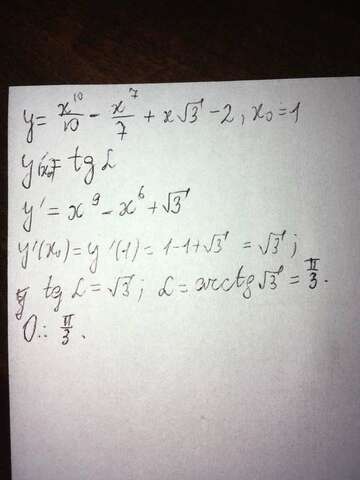 y = x^10/10 - x^7/7 + x√3 - 2, x₀ = 1
y'(x₀) = tg α
y' = x^9 - x^6 + √3
y'(x₀) = y'(1) = 1-1+√3 = √3;
tg α = √3; α = arctg √3 = π/3.
O.: π/3.